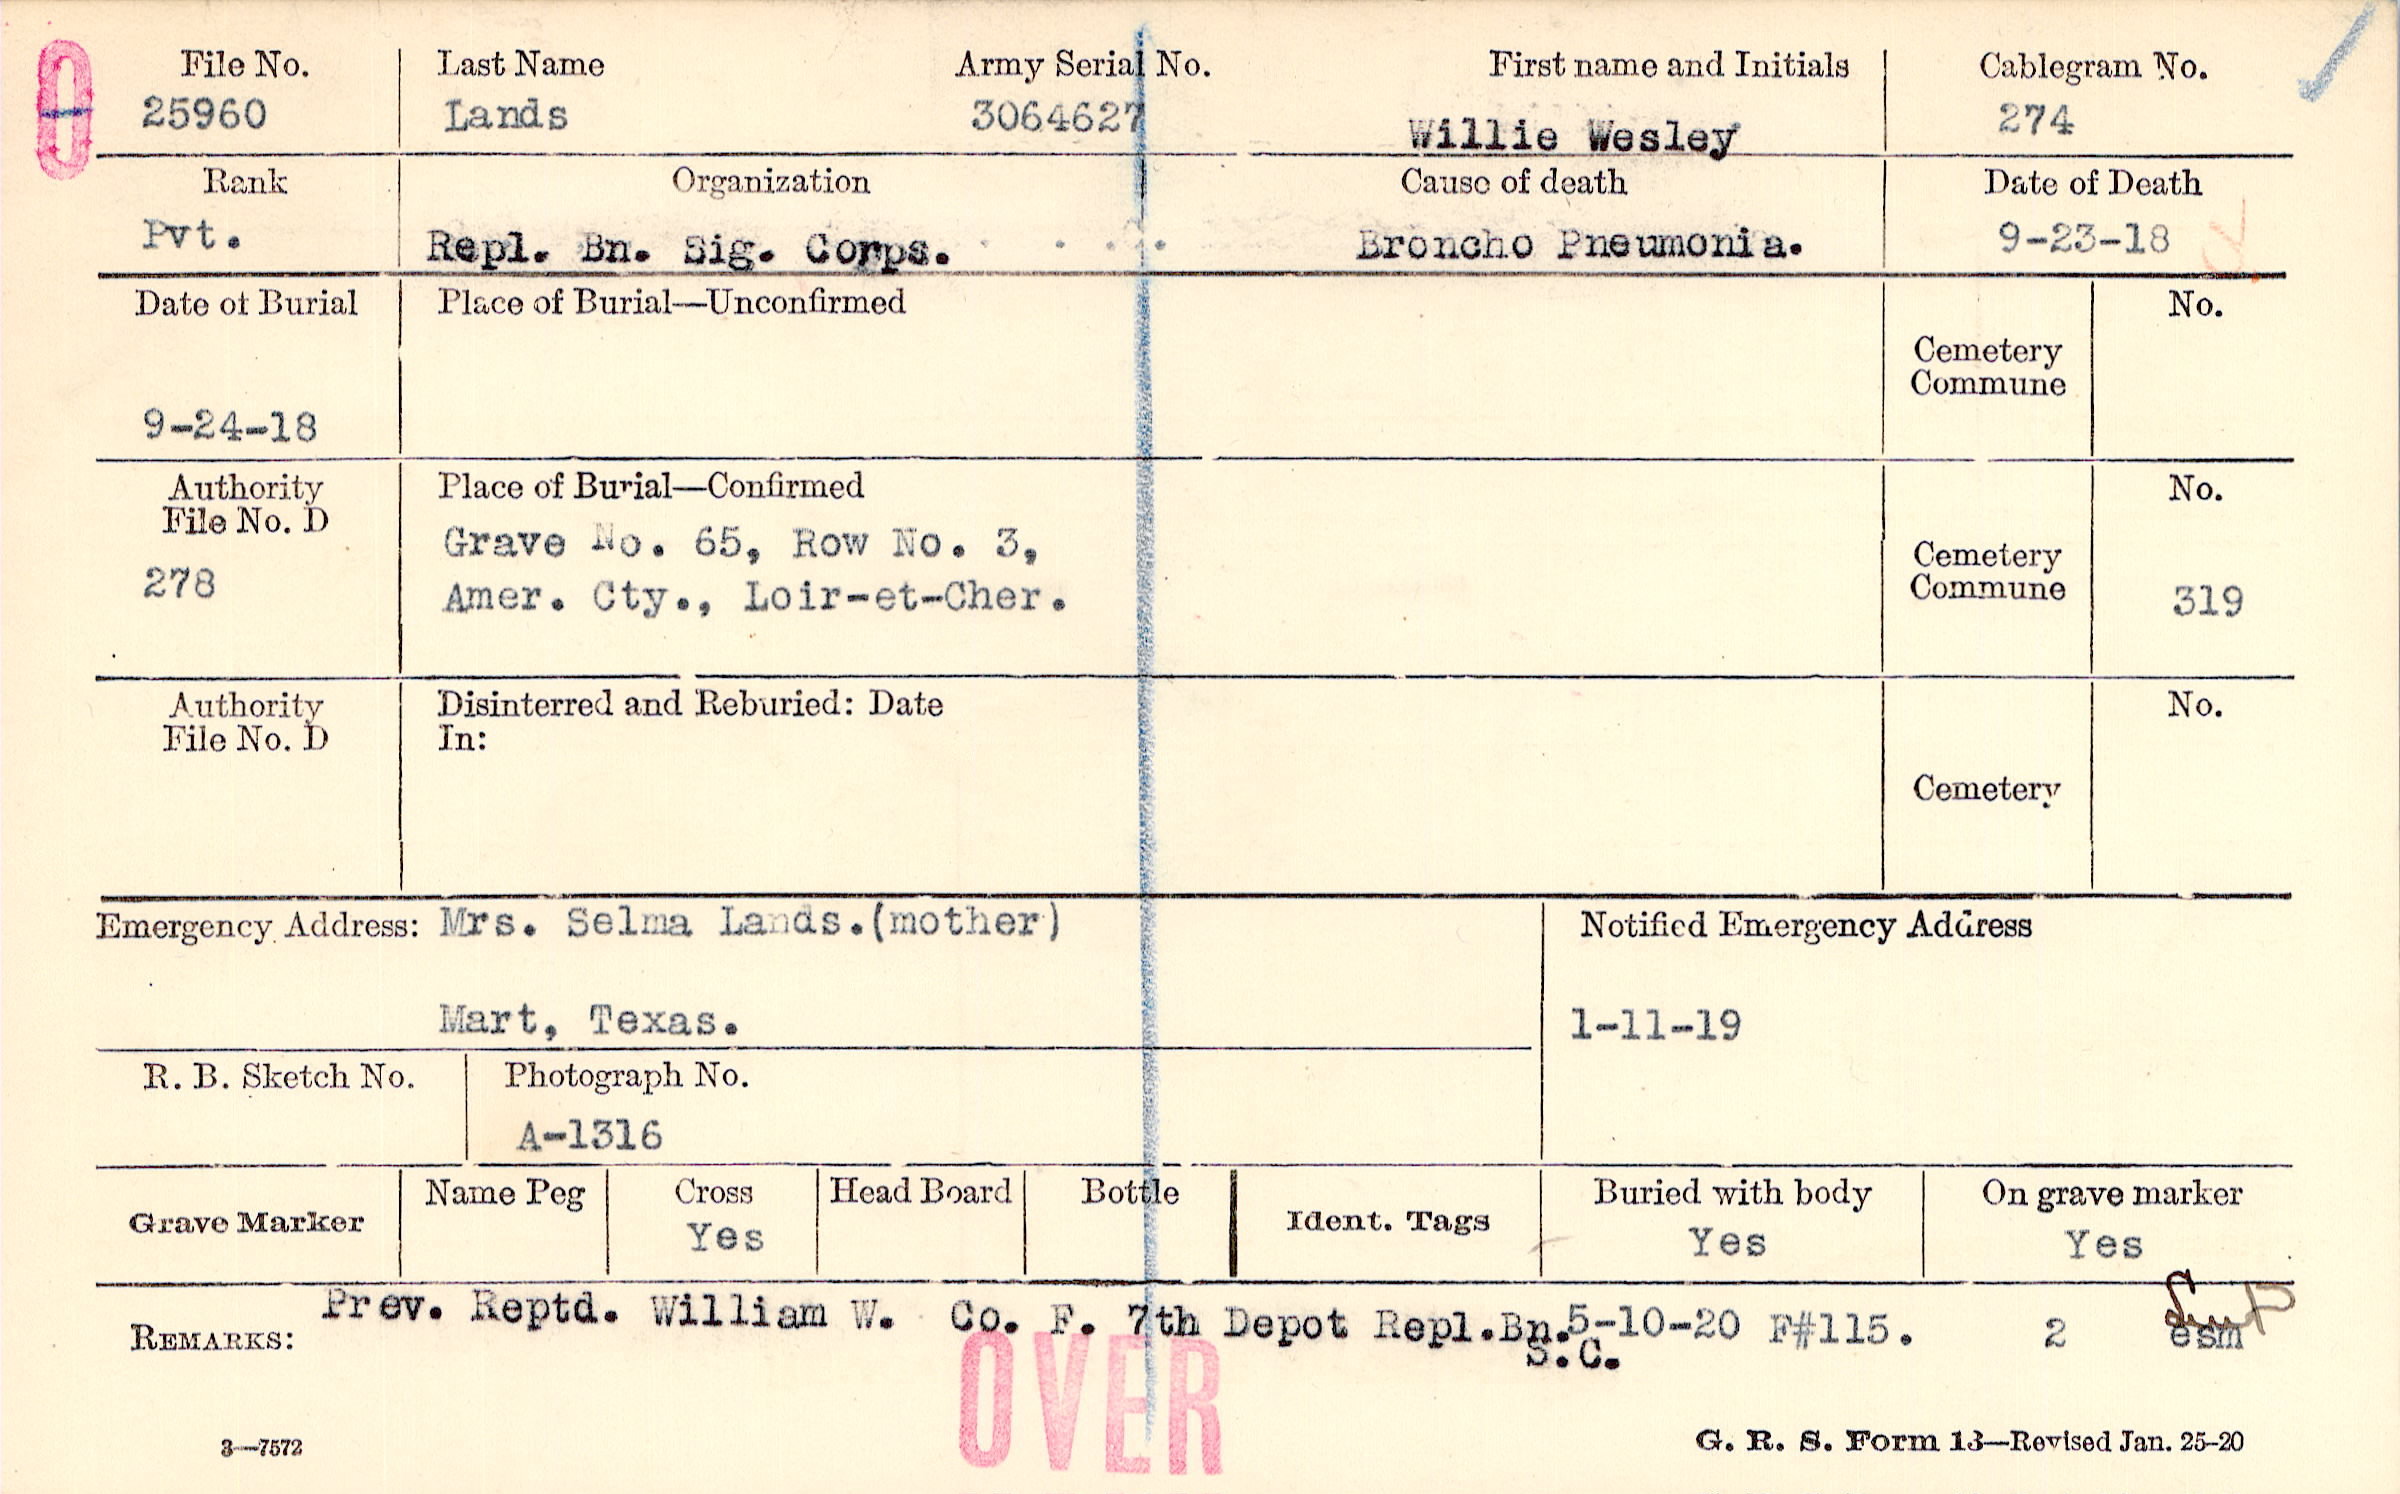 0
File No. Last Name Army Serial No. First name and Initials Cablegram No.
25960 Lands 3064627 Willie Wesley 274
Rank Organization Cause of death Date of Death
Pvt. Repl. Bn. Sig. Corps. Broncho Pneumonia. 9-23-18
Date of Burial Place of Burial—Unconfirmed No.
Cemetery
Commune
9-24-18
Authority Place of Burial—Confirmed No.
File No. D
Grave No. 65, Row No. 3,
Cemetery
278 Commune 319
Amer. Cty., Loir-et-Cher.
Authority Disinterred and Reburied: Date No.
File No. D In:
Cemetery
Emergency Address: Mrs. Selma Lands.(mother) Notified Emergency Address
Mart, Texas. 1-11-19
R. B. Sketch No. Photograph No.
A-1316
Grave Marker Name Peg Cross Head Board Bottle Ident. Tags Buried with body On grave marker
Yes Yes Yes
REMARKS: Prev. Reptd. William W. Co. F. 7th Depot Repl.Bn.5-10-20 F#115. 2 esm
S.C.
OVER
3—7572 G. R. S. Form 13—Revised Jan. 25-20